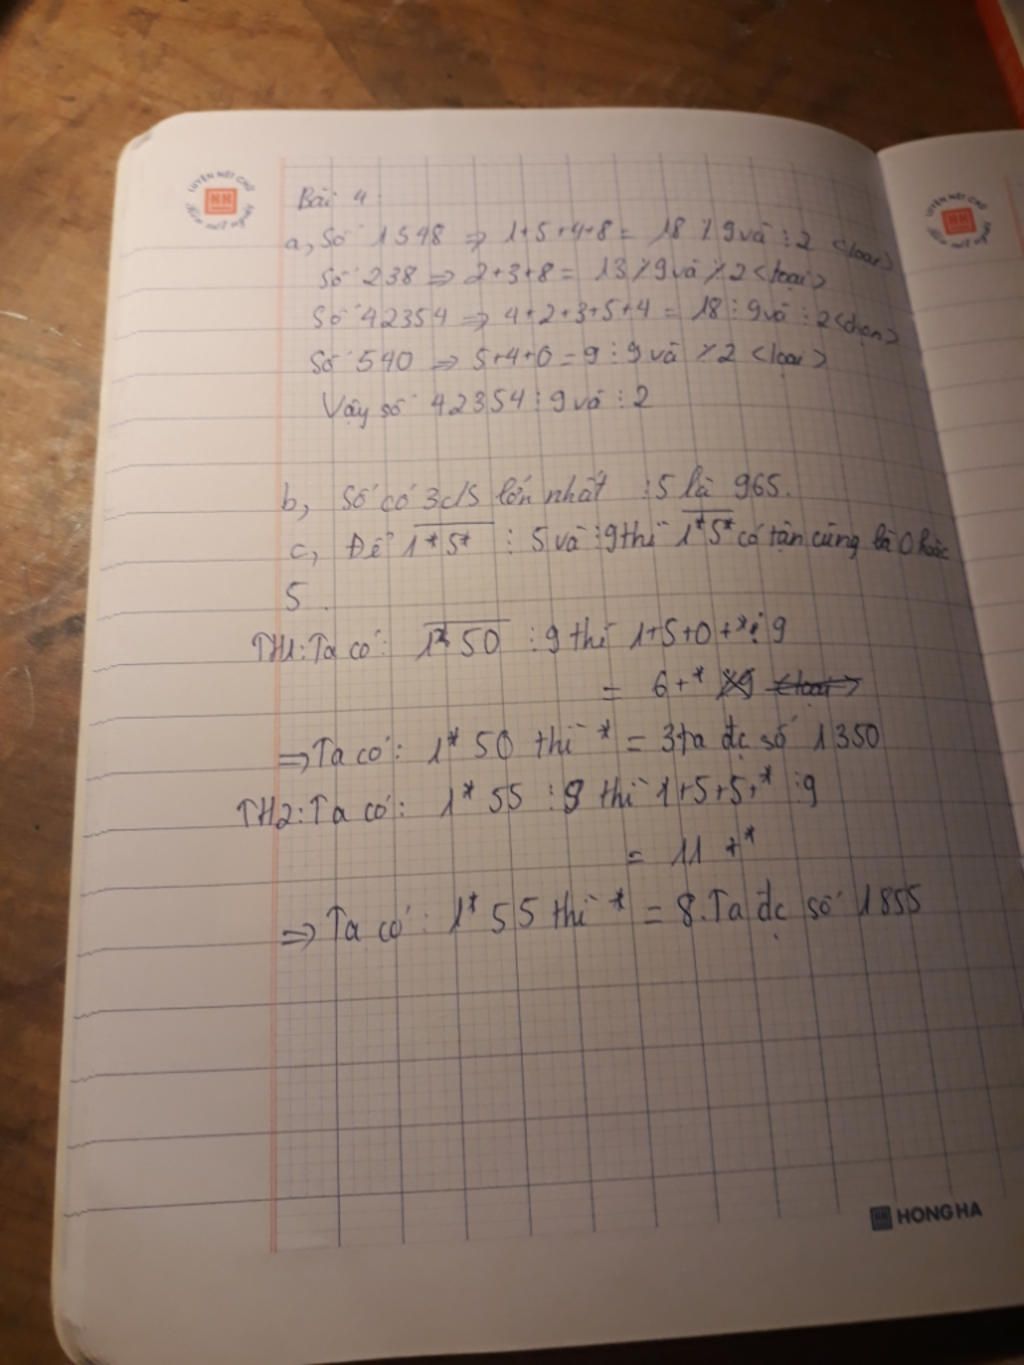 LUYỆN NÉT CHỮ
RÈN NẾT NGƯỜI
Bài 4
a, Số 1548 => 1+5+4+8 = 18 ⋮̸ 9 và ⋮ 2 <loại>
Số 238 => 2+3+8 = 13 ⋮̸ 9 và ⋮̸ 2 <loại>
Số 42354 => 4+2+3+5+4 = 18 ⋮ 9 và ⋮ 2 <chọn>
Số 540 => 5+4+0 = 9 ⋮ 9 và ⋮̸ 2 <loại>
Vậy số 42354 ⋮ 9 và ⋮ 2
b, Số có 3c/s lớn nhất ⋮ 5 là 965.
c, Để 1*5* ⋮ 5 và ⋮ 9 thì 1*5* có tận cùng là 0 hoặc
5.
TH1: Ta có: 1*50 ⋮ 9 thì 1+5+0+* ⋮ 9
= 6+*
=> Ta có: 1*50 thì * = 3 ta đc số 1350
TH2: Ta có: 1*55 ⋮ 9 thì 1+5+5+* ⋮ 9
= 11 +*
=> Ta có: 1*55 thì * = 8. Ta đc số 1855
HONG HA